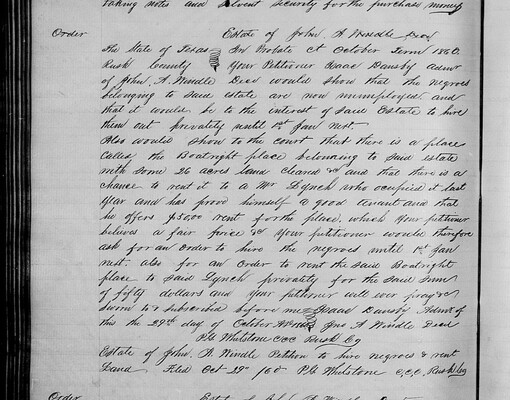 taking notes and Solvent Security for the purchase money
Order Estate of John A Windle Decd
The State of Texas In Probate Ct October Term 1860
Rusk County Your Petitioner Isaac Dansby admr
of John. A. Windle Decd would show that the negroes
belonging to said estate are now unemployed and
that it would be to the interest of said Estate to hire
them out privately until 1st Jan next.
Also would show to the court that there is a place
Called the Boatright place belonging to said estate
with some 26 acres Land Cleared &c and that there is a
chance to rent it to a Mr Lynch who occupied it last
year and has proved himself a good tenant and that
he offers $50.00 rent for the place, which your petitioner
believes a fair price &c Your petitioner would therefore
ask for an order to hire the negroes until 1st Jan
next. also for an Order to rent the said Boatright
place to said Lynch privately for the said Sum
of fifty dollars and your petitioner will ever pray &c
Sworn to & Subscribed before me Isaac Dansby Admr of
this the 29th day of October Jno A Windle Decd
P.G. Whetstone C.C.C. Rusk Co
Estate of John. A. Windle Petition to hire negroes & rent
Land. Filed Oct 29th /60 P.G. Whetstone C.C.C. Rusk Co
Order Estate of